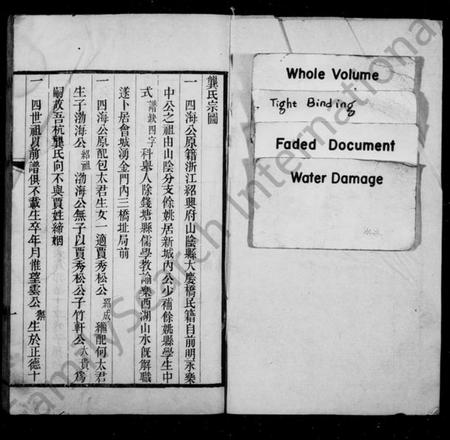 龔氏宗圖
一 四海公原籍浙江紹興府山陰縣大慶橋民籍自前明永樂
中公之祖由山陰分支餘姚居新城內公少補餘姚縣學生中
式譜缺四字科舉人除錢塘縣儒學教諭樂西湖山水既解職
遂卜居會城湧金門內三橋址局前
一 四海公原配包太君生女一適賈秀松公 繼配何太君
生子渤海公紹祖渤海公無子以賈秀松公子竹軒公大賓爲
嗣故吾杭龔氏向不與賈姓締姻
一 四世祖以前譜俱不載生卒年月惟望雲公 生於正德十
Whole Volume
Tight Binding
Faded Document
Water Damage
FamilySearch International